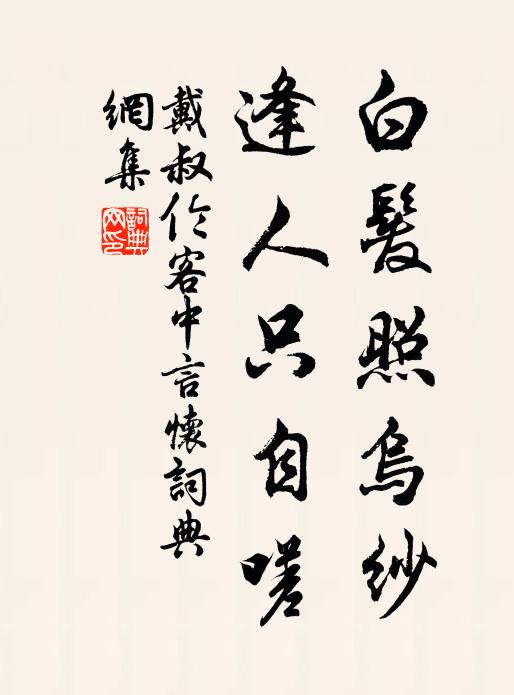 白髮照烏紗
逢人只自嗟
戴叔伦客中言懷詞典
網集
詞典网印